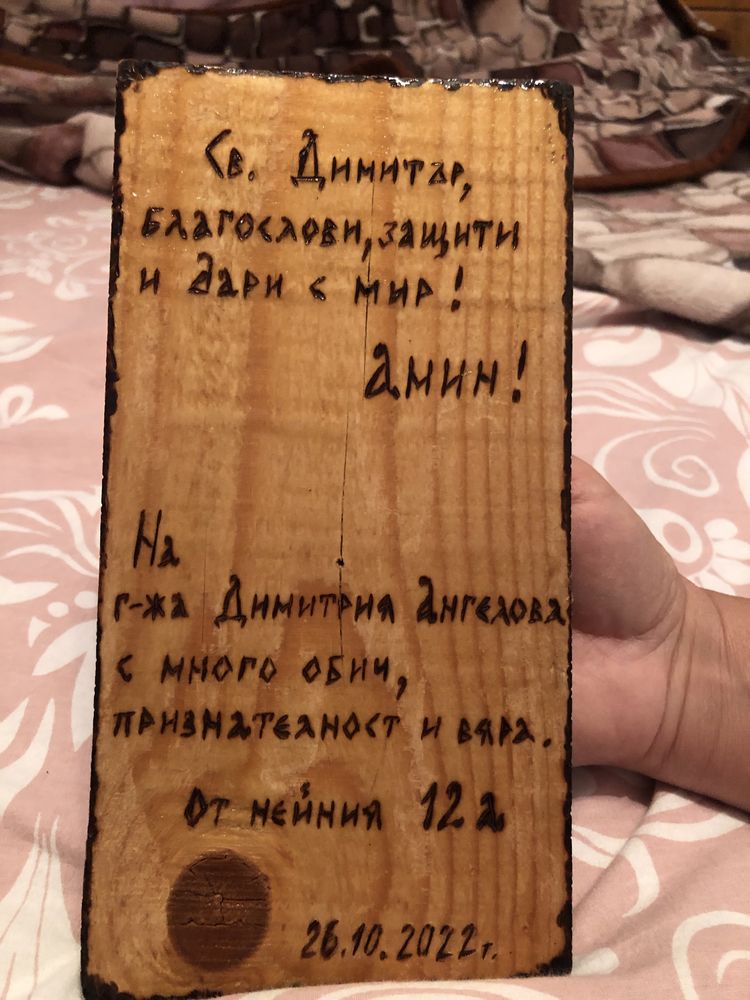 Св. Димитър,
благослови, защити
и дари с мир!
Амин!
На
г-жа Димитрия Ангелова
с много обич,
признателност и вяра.
От нейния 12а
26.10.2022г.